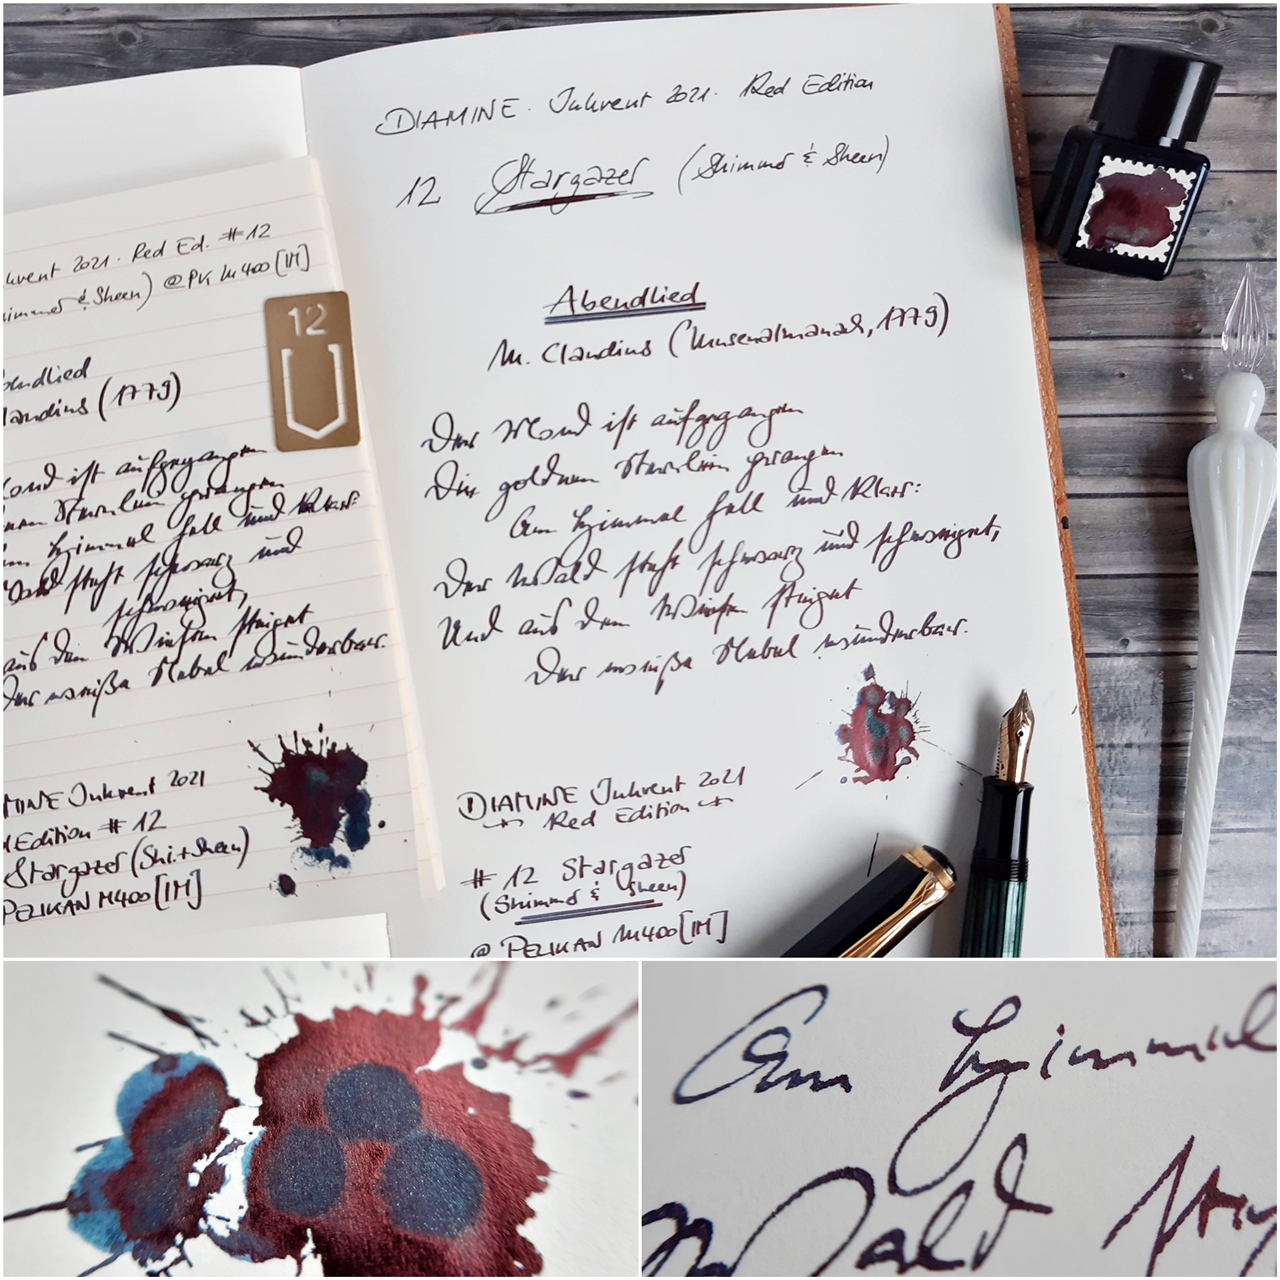 DIAMINE · Inkvent 2021 · Red Edition
12 Stargazer (Shimmer & Sheen)
Abendlied
M. Claudius (Musenalmanach, 1779)
Der Mond ist aufgegangen
Die goldnen Sternlein prangen
Am Himmel hell und klar:
Der Wald steht schwarz und schweiget,
Und aus den Wiesen steiget
Der weiße Nebel wunderbar.
DIAMINE Inkvent 2021
Red Edition
# 12 Stargazer
(Shimmer & Sheen)
@ PELIKAN M400 [IM]
kvent 2021 · Red Ed. # 12
immer & Sheen) @ PK M400 [IM]
12
bendlied
laudius (1779)
ond ist aufgegangen
nen Sternlein prangen
m Himmel hell und klar:
Wald steht schwarz und
schweiget,
aus den Wiesen steiget
Der weiße Nebel wunderbar.
MINE Inkvent 2021
d Edition # 12
Stargazer (Shi.+Sheen)
PELIKAN M400 [IM]
Am Himmel
Wald ste